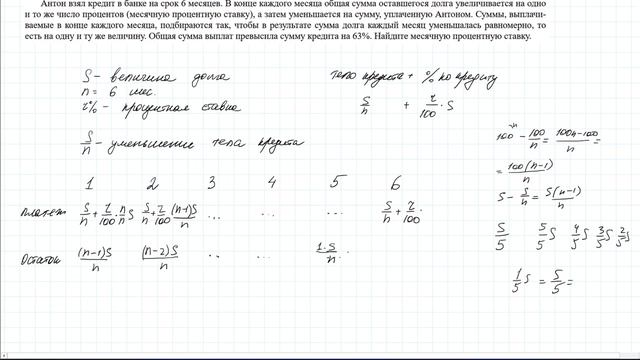 Антон взял кредит в банке на срок 6 месяцев. В конце каждого месяца общая сумма оставшегося долга увеличивается на одно
и то же число процентов (месячную процентную ставку), а затем уменьшается на сумму, уплаченную Антоном. Суммы, выплачи-
ваемые в конце каждого месяца, подбираются так, чтобы в результате сумма долга каждый месяц уменьшалась равномерно, то
есть на одну и ту же величину. Общая сумма выплат превысила сумму кредита на 63%. Найдите месячную процентную ставку.
S - величина долга
тело кредита + % по кредиту
n = 6 мес.
r% - процентная ставка
S/n + r/100 · S
S/n - уменьшение тела кредита
100 - 100/n = (100n-100)/n =
= 100(n-1)/n
S - S/n = S(n-1)/n
1 2 3 4 5 6
платеж S/n + r/100 · n/n S S/n + r/100 (n-1)S/n ... ... ... S/n + r/100 ·
S/5 5/5 S 4/5 S 3/5 S 2/5 S
Остаток (n-1)S/n (n-2)S/n .. ... 1·S/n .
1/5 S = S/5 =